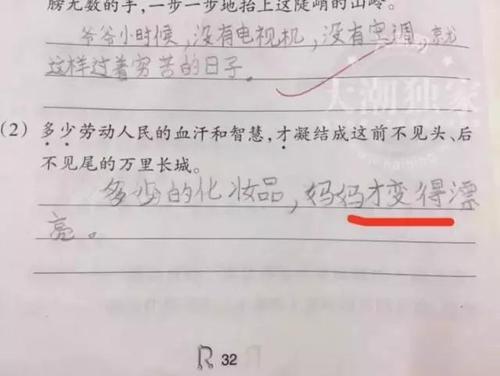 膀无数的手,一步一步地抬上这陡峭的山岭。
爷爷小时候,没有电视机,没有空调,就
这样过着穷苦的日子.
大潮独家
(2) 多少劳动人民的血汗和智慧,才凝结成这前不见头、后
不见尾的万里长城。
多少的化妆品,妈妈才变得漂
亮。
32